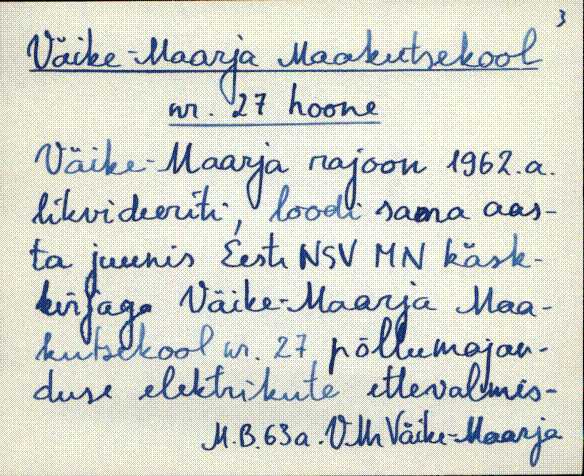 3
Väike-Maarja Maakutsekool
nr. 27 hoone
Väike-Maarja rajoon 1962.a.
likvideeriti, loodi sama aas-
ta juunis Eesti NSV MN käsk-
kirjaga Väike-Maarja Maa-
kutsekool nr. 27 põllumajan-
duse elektrikute ettevalmis-
M.B. 63a. V.M. Väike-Maarja